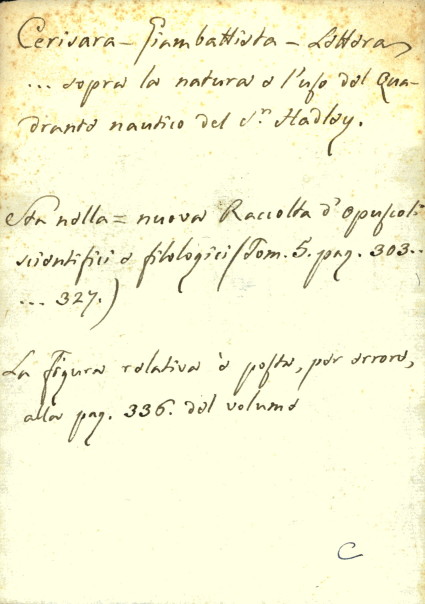 Cerisara - Giambattista - Lettera
... sopra la natura e l'uso del Qua-
drante nautico del Sr. Hadley.
Sta nella = nuova Raccolta d'opuscoli
scientifici e filologici (Tom. 5. pag. 303..
... 327.)
La figura relativa è posta, per errore,
alla pag. 336. del volume
C